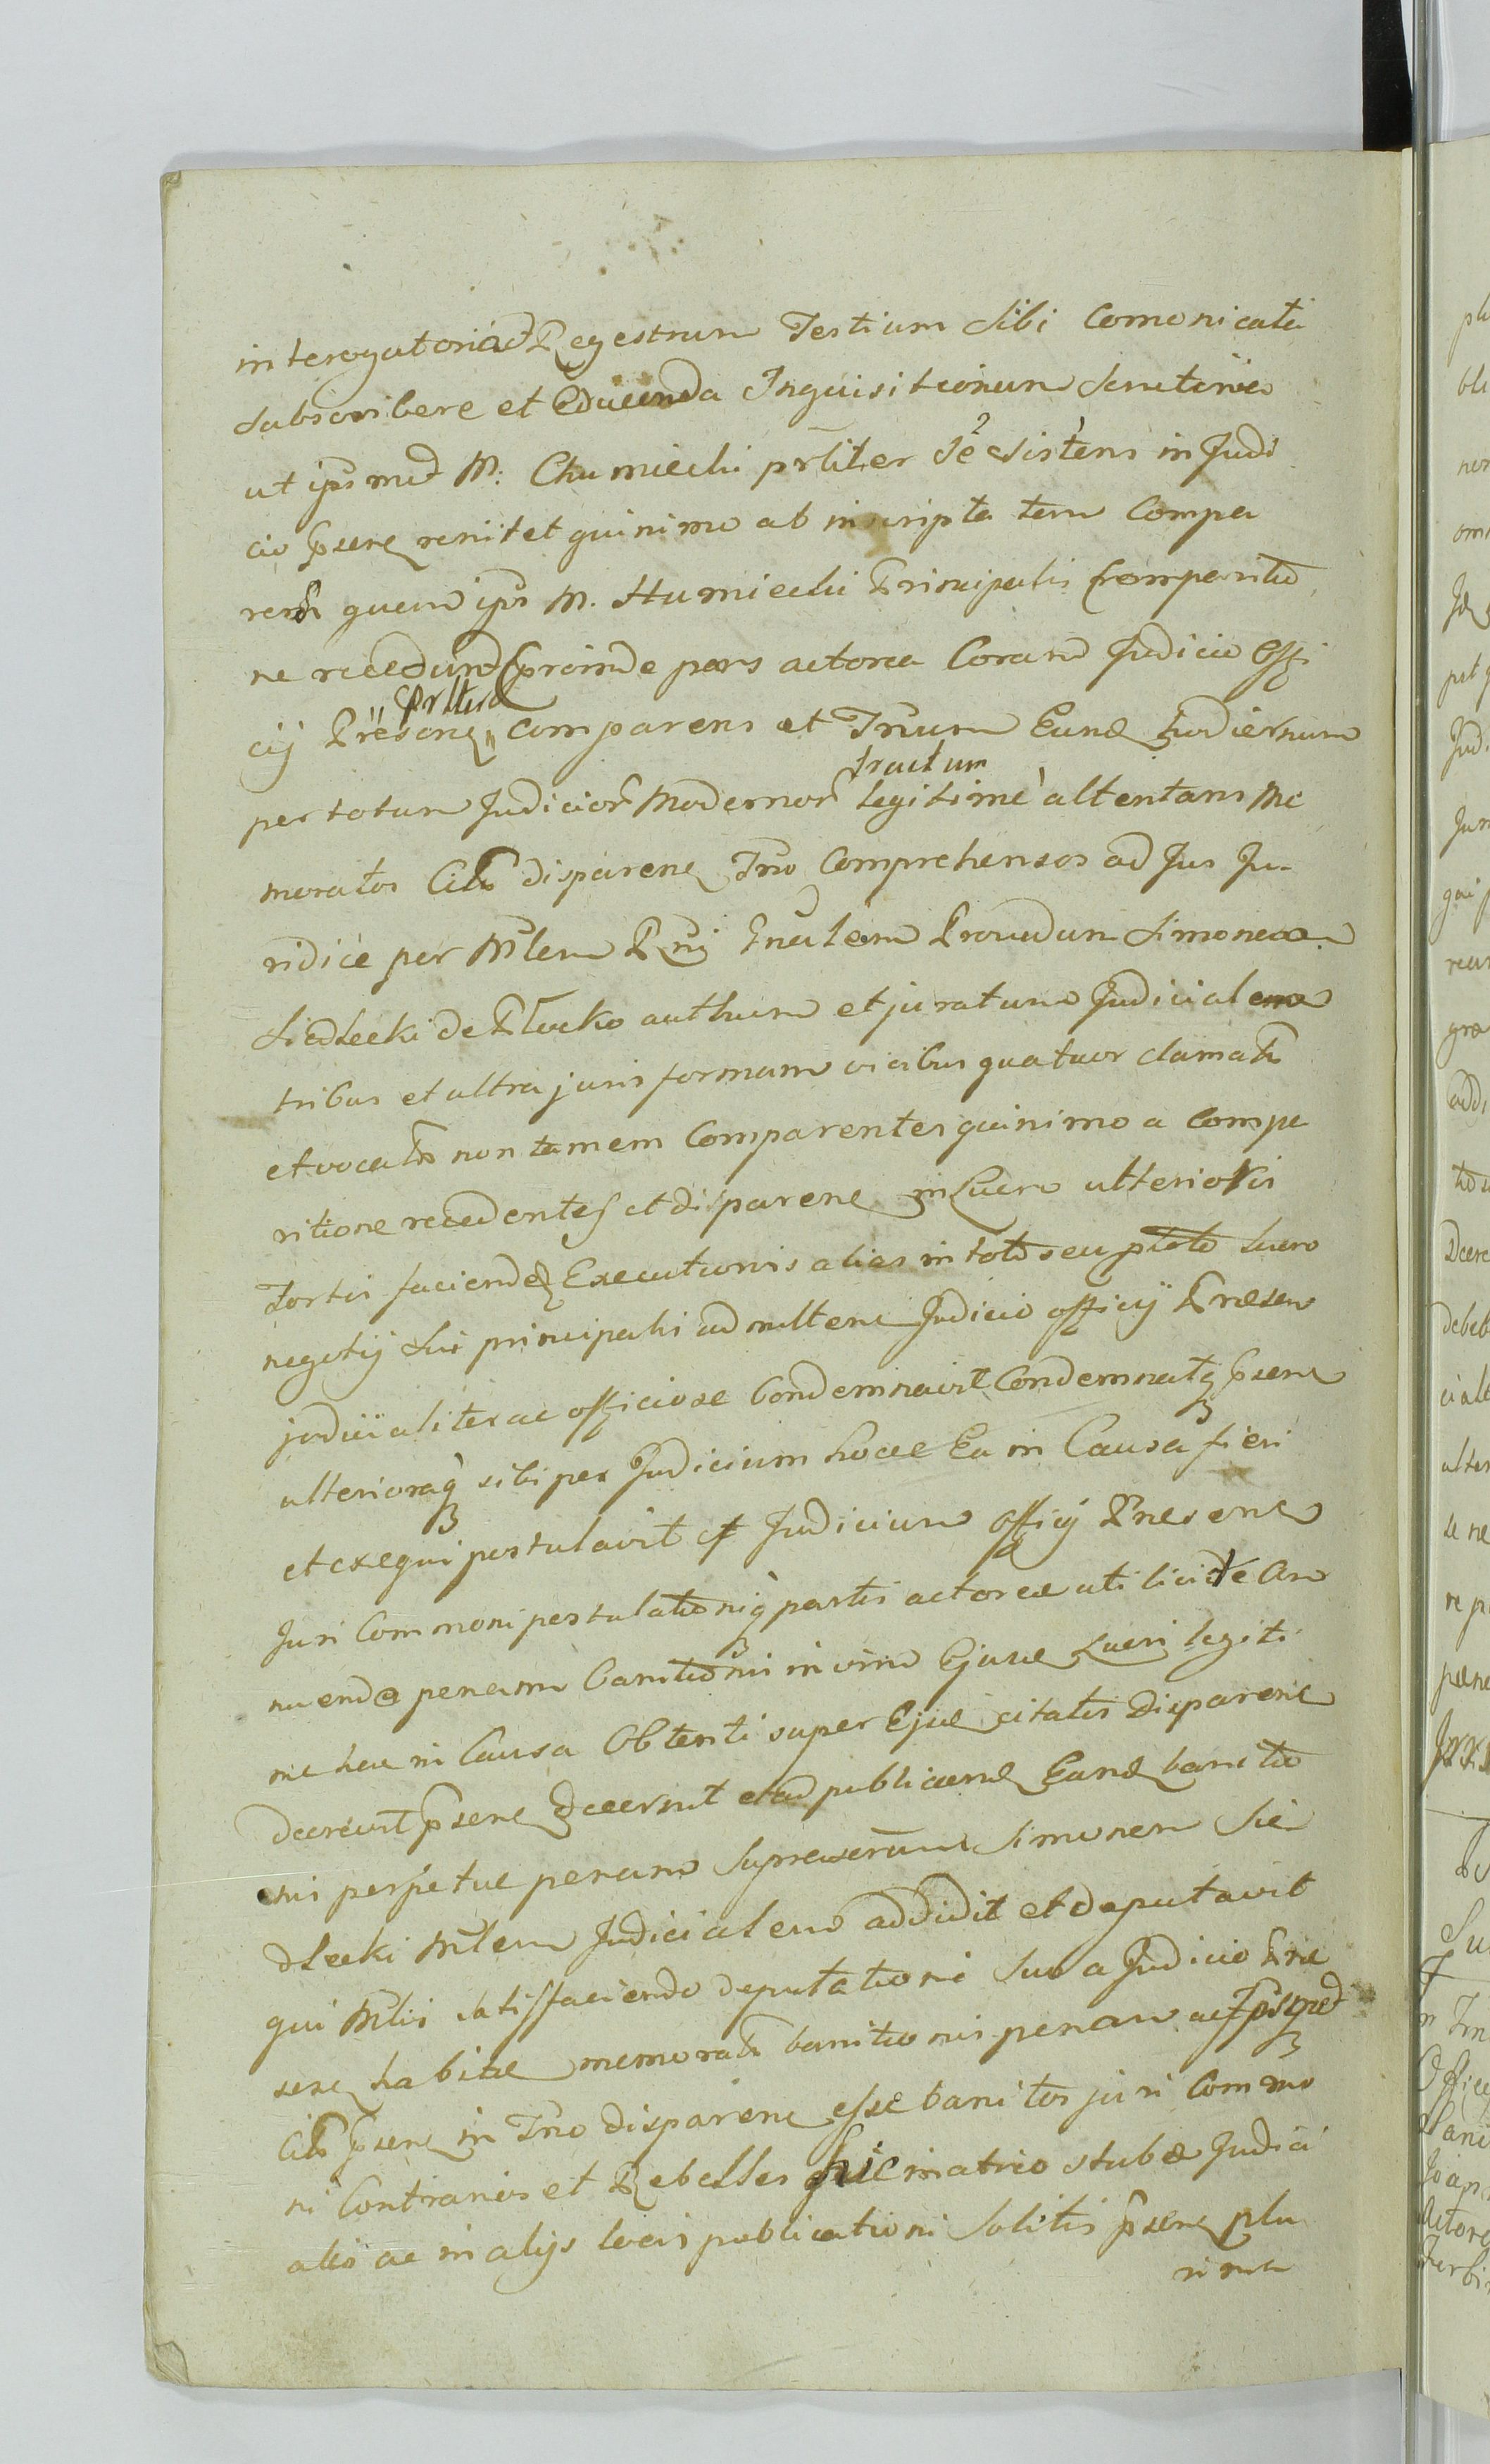 interogatoria et Regestrum Testium sibi Comonicata
subscribere et Educenda Inquisitionum Scrutinia
ut ips med M: Chumiecki prltter sè sistens in Judi
cio psens renitet quinimo ab inscripta tam Compa
rendi quam ips M. Humiecki Principalis Comparitio
ne recedunt proinde pars actorea Coram Judicio Offi
cij Præsenẹ prltter comparens et Tnum Eund hodiernum
per totum Judicior modernor tractum legitimè attentans me
moratos Citos disparenẹ Tno Comprehensos ad Jus Ju-
ridicè per Mtlem Rni Gnalem Providum Simonem
Siedlecki de Plocko authum et juratum Judicialem
tribus et ultra juris formam vicibus quatuor clamatos
et vocatos non tamem Comparentes quinimo a Compa
ritione recedentes et disparene in Lucro ulterioris
Fortis faciendẹ Executionis alias in toto seu plato lucro
negotij sui principalis admittenẹ Judicio officij Præsen
judicialiter ac officiose Condemnavit Condemnatq psens
ulterioraq sibi per Judicium hocce Ea in Causa fieri
et exequi postulavit et Judicium officij Presens
Juri Commoni postulationiq partis actoreæ uti licitè An
nuendo penam Banitionis in vim Ejusce Lucri legiti
me hac in Causa Obtenti super Ejusce citatis Disparene
decrevit psens Decernit et ad publicanẹ Eand banitio
nis perpetuæ penam supraserum Simonem Sie
dlecki Mtlem Judicialem addidit et deputavit
qui Mtlis satisfaciendo deputationi suæ a Judicio Præ
senẹ habitæ memorati banitionis penam ac Ipsosmed
Citos psens in Tno disparene esse banitos juri Commo
ni Contrarios et Rebelles hic in atrio stubæ Judici
alis ac in alijs locis publicationi Solitis psens plu
rima